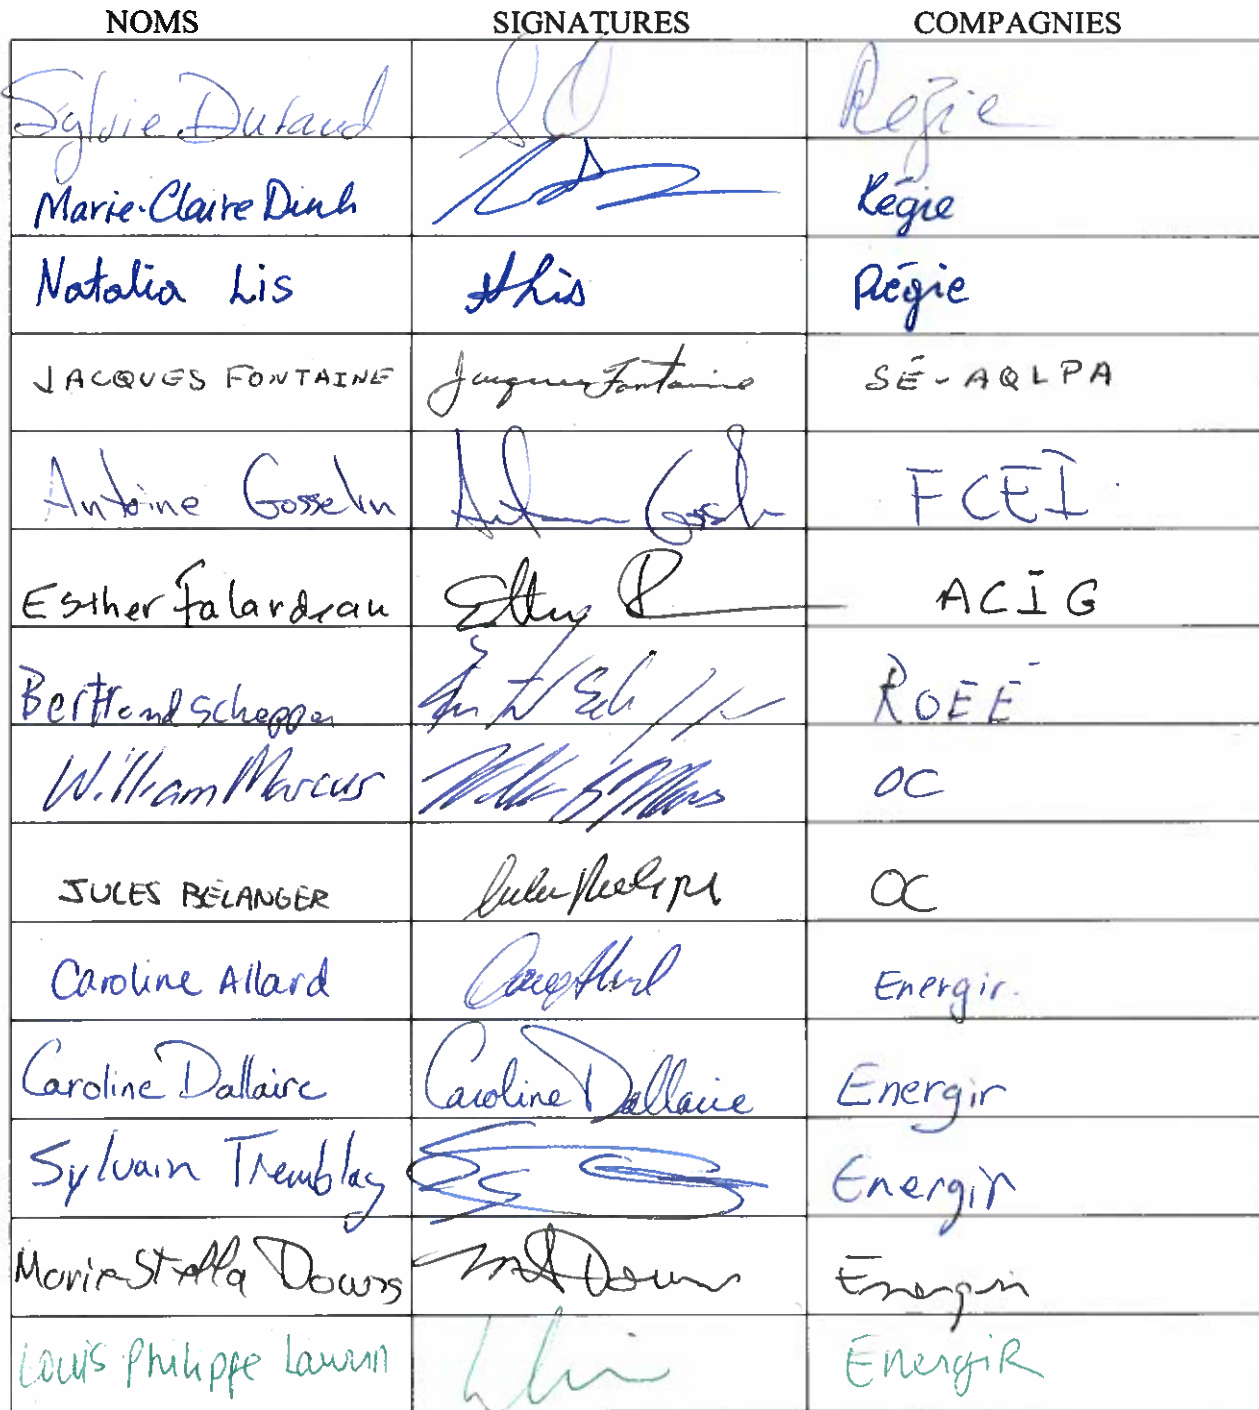 NOMS SIGNATURES COMPAGNIES
Sylvie Durand SD Régie
Marie-Claire Dinh Régie
Natalia Lis NLis Régie
JACQUES FONTAINE Jacques Fontaine SÉ-AQLPA
Antoine Gosselin FCEI
Esther Falardeau ACIG
Bertrand Schepper ROEÉ
William Marcus OC
JULES BÉLANGER OC
Caroline Allard Energir
Caroline Dallaire Caroline Dallaire Energir
Sylvain Tremblay Energir
Marie-Stella Downs MSDowns Énergir
Louis Philippe EnergiR